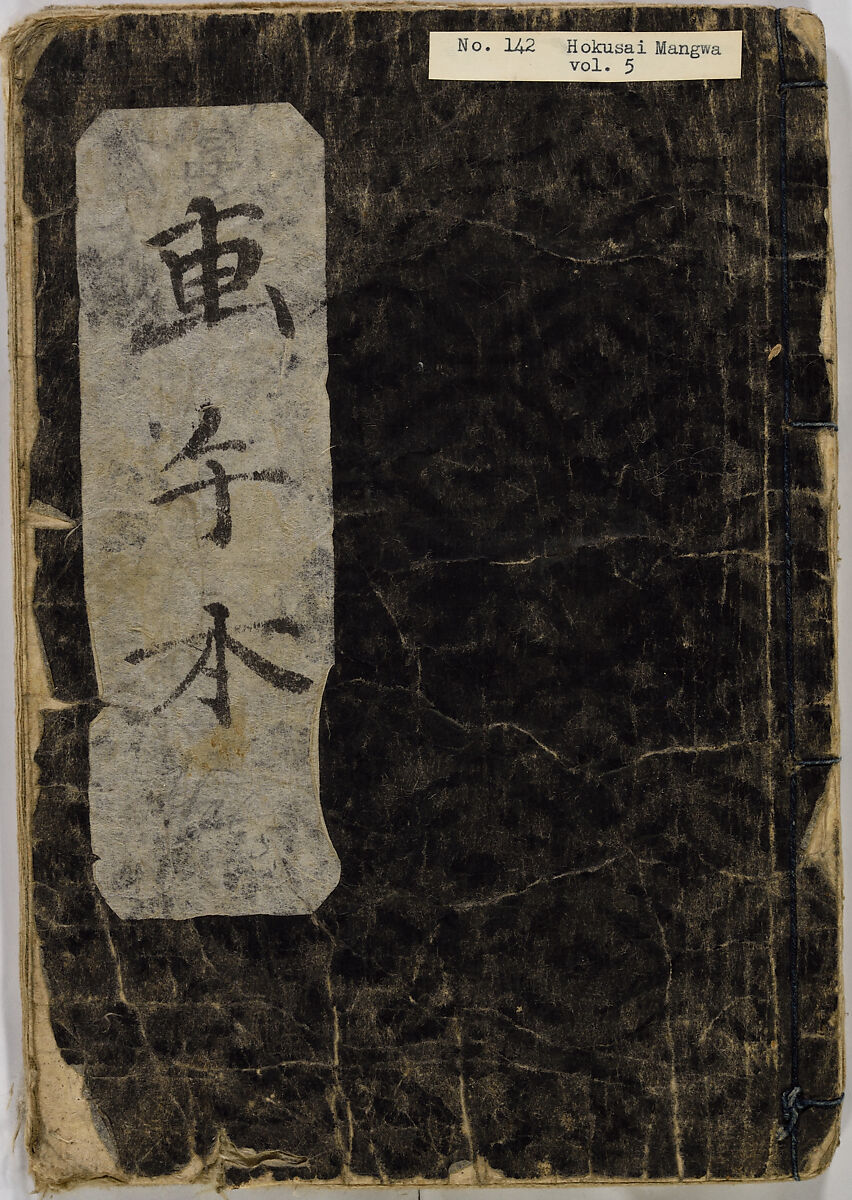 No. 142 Hokusai Mangwa
vol. 5
画手本